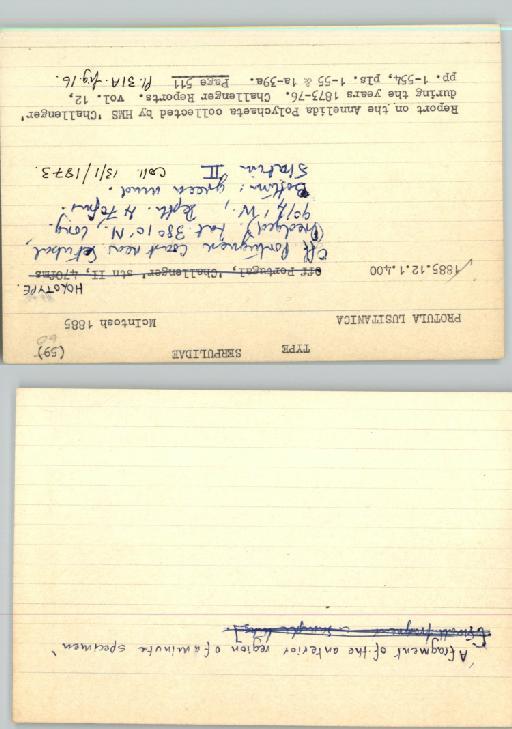 TYPE SERPULIDAE (59)
PROTULA LUSITANICA McIntosh 1885
HOLOTYPE.
1885.12.1.400 Off Portugal, 'Challenger' stn II, 470fms
Off Portuguese Coast near Setubal,
(Dredged) Lat. 38° 10' N, Long.
9° 14' W., Depth. 470fms.
Bottom: green mud.
Station II Coll. 13/1/1873
Report on the Annelida Polychaeta collected by HMS 'Challenger'
during the years 1873-76. Challenger Reports. vol. 12,
pp. 1-554, pls. 1-55 & 1a-39a. Page 511 Pl. 31A. fig. 16.
'A fragment of the anterior region of a minute specimen'